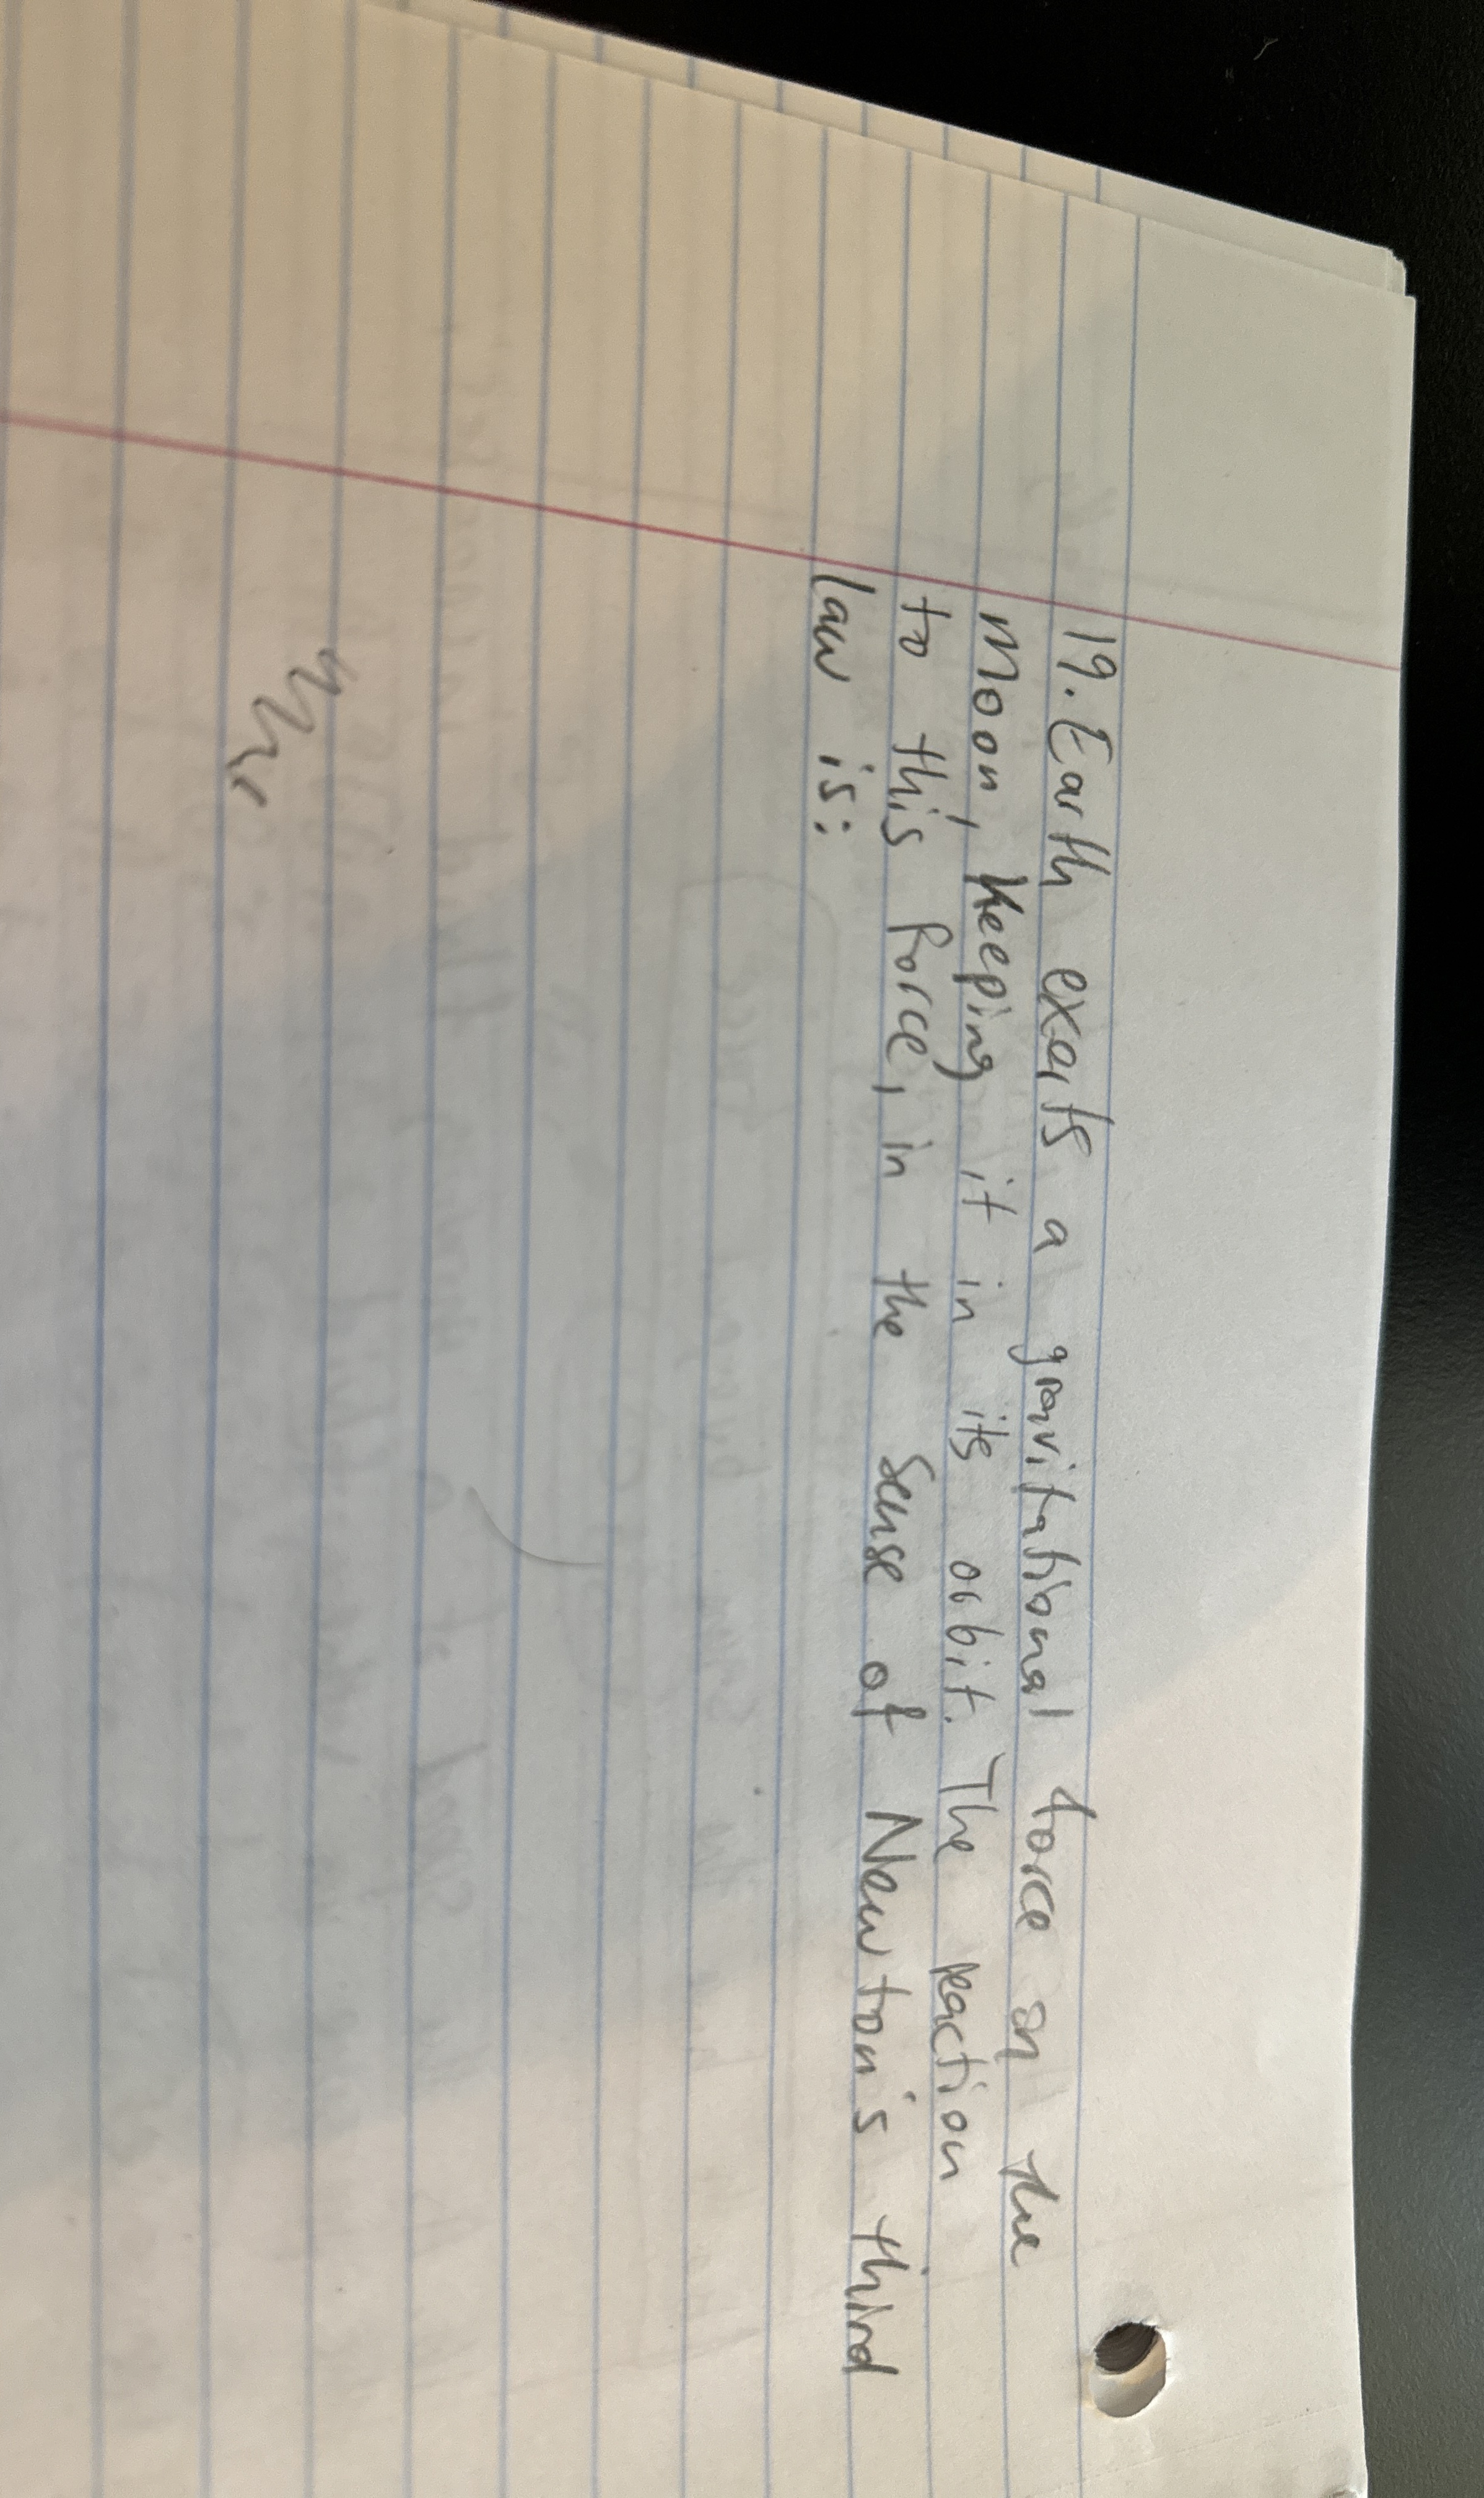 19. Earth exerts a gravitational force on the
Moon, keeping it in its orbit. The reaction
to this force, in the sense of Newton's third
law is: